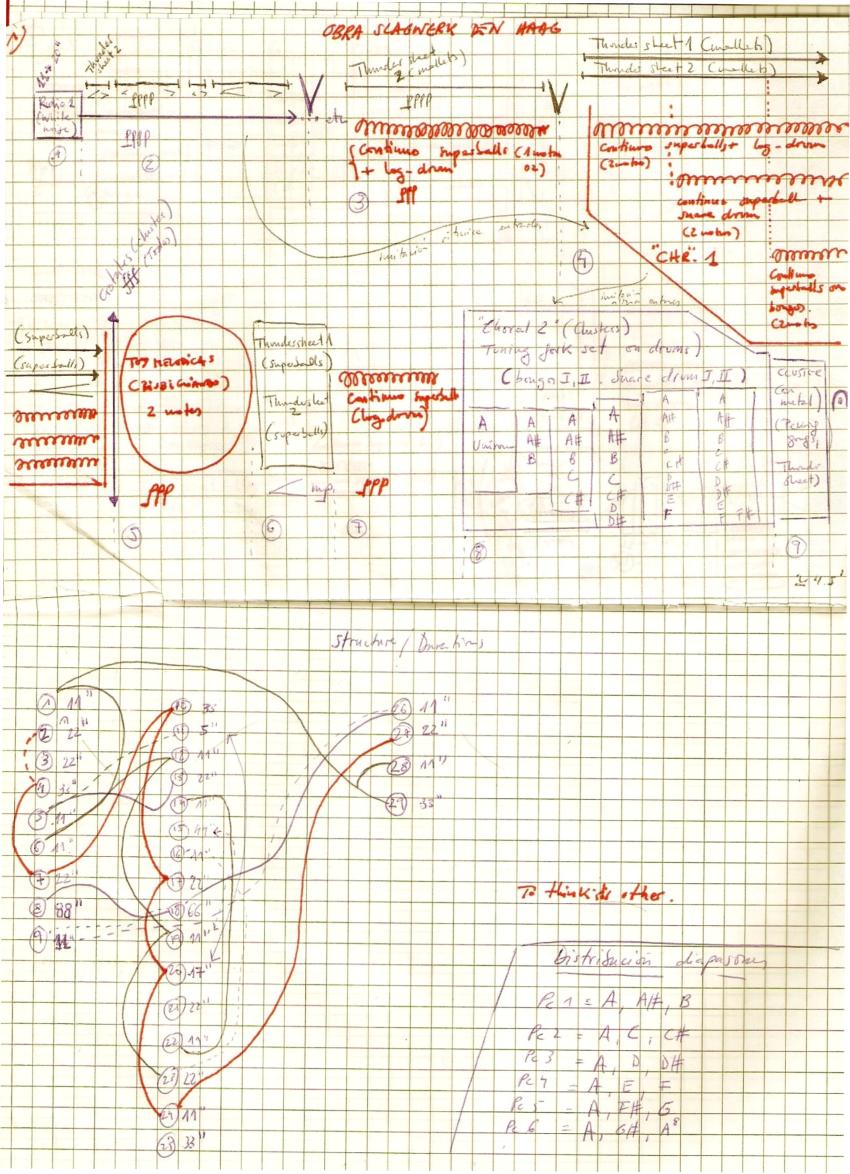 1)
OBRA SLAGWERK DEN HAAG
Thunder
sheet 2
Thunder sheet
2 (mallets)
Thunder sheet 1 (mallets)
Thunder sheet 2 (mallets)
Radio 2
(white
noise)
pppp
pppp
pppp
... etc
1
2
Continuo superballs (1 motor
+ log-drum
ppp
3
Continuo superballs + log-drum
(2 motos)
continuo superball +
snare drum
(2 motos)
"CHR". 1
4
Continuo
superballs on
bongos.
(2 motos
Crotales (cluster)
(Todos)
(superballs)
(superballs)
TOY MELODICAS
(BISBIGLIANDO)
2 notes
ppp
5
Thundersheet 1
(superballs)
Thundersheet
2
(superballs)
mp.
6
Continuo superball
(log-drum)
ppp
7
"Choral 2" (Clusters)
Tuning fork set on drums)
(bongo I, II. Snare drum I, II)
A A A A A A
A# A# A# A# A#
B B B B B
C C C C
C# C# C# C#
D D D
D# D# D#
E E
F F F#
8
(on
metal)
gongs,
Thunder
sheet)
9
4.5'
Structure / Durations
1 11"
2 22"
3 22"
4 33"
5 11"
6 11"
7 22"
8 88"
9 11"
11 5"
12 11"
13 22"
14 11"
16 11"
17 22"
18 66"
19 11"
20 17"
21 22"
22 11"
23 22"
24 11"
25 33"
26 11"
27 22"
28 11"
29 33"
Distribución diapasones
Pc 1 = A, A#, B
Pc 2 = A, C, C#
Pc 3 = A, D, D#
Pc 4 = A, E, F
Pc 5 = A, F#, G
Pc 6 = A, G#, A8